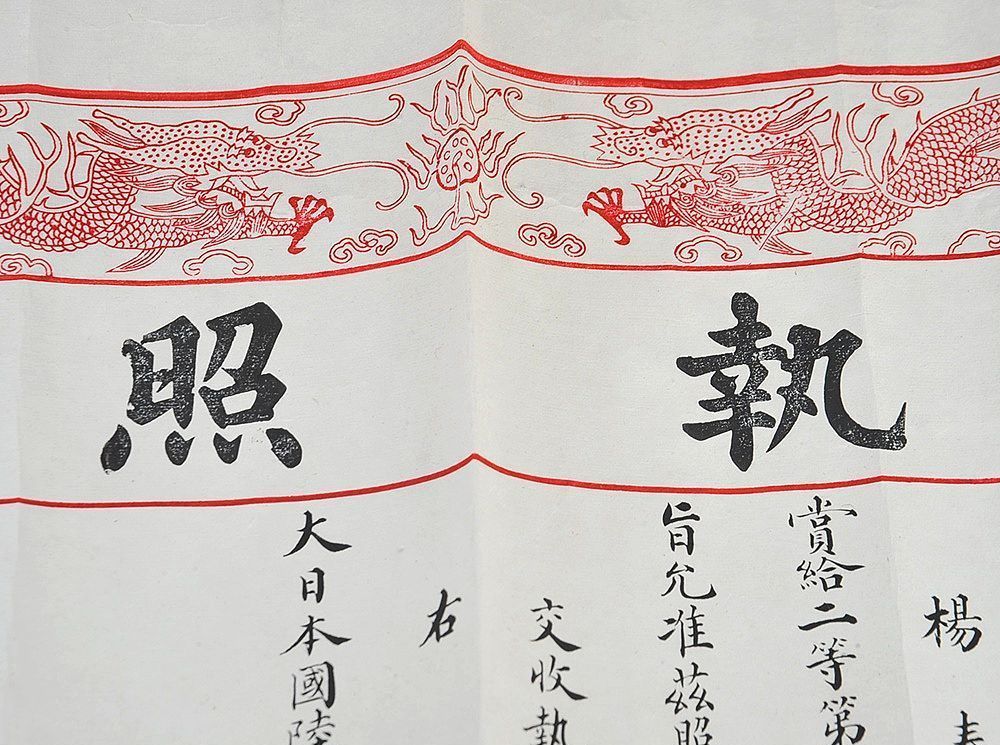 執照
楊
賞給二等第
旨允准茲照
交收執
右
大日本國陸